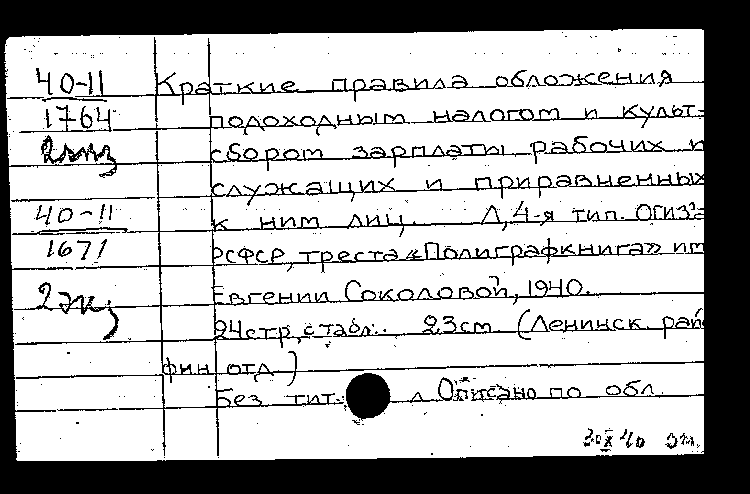 40-11 Краткие правила обложения
1764 подоходным налогом и культ=
2 экз сбором зарплаты рабочих и
служащих и приравненных
40-11 к ним лиц. Л, 4-я тип. ОГИЗ=
1671 РСФСР, треста «Полиграфкнига» им
2 экз Евгении Соколовой, 1940.
24 стр, с табл. 23 см (Ленинск рай
фин отд)
Без тит. л Описано по обл.
30 X 40